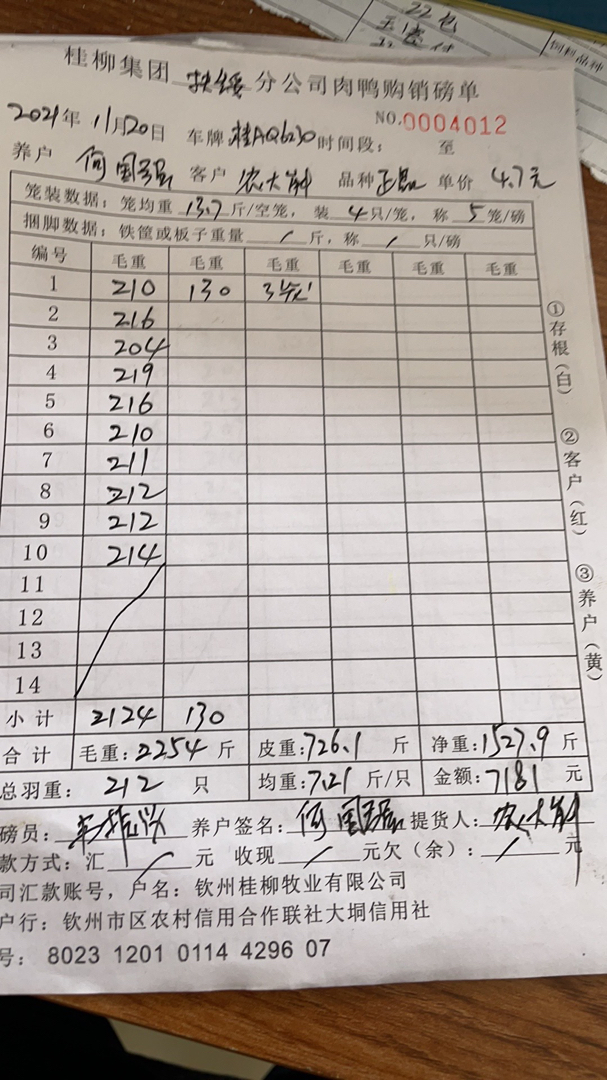 22包
饲料品种
桂柳集团 扶绥 分公司肉鸭购销磅单
NO.0004012
2021年 11月20日 车牌 桂AQ6230 时间段: 至
养户 何国强 客户 农大新 品种 正品 单价 4.7元
笼装数据: 笼均重 13.7 斤/空笼, 装 4 只/笼, 称 5 笼/磅
捆脚数据: 铁筐或板子重量 / 斤, 称 / 只/磅
编号 毛重 毛重 毛重 毛重 毛重 毛重
1 210 130 3笼
2 216
3 204
4 219
5 216
6 210
7 211
8 212
9 212
10 214
11
12
13
14
小计 2124 130
合计 毛重: 2254 斤 皮重: 726.1 斤 净重: 1527.9 斤
总羽重: 212 只 均重: 7.21 斤/只 金额: 7181 元
磅员: 养户签名: 何国强 提货人: 农大新
款方式: 汇 / 元 收现 / 元欠(余): / 元
司汇款账号, 户名: 钦州桂柳牧业有限公司
户行: 钦州市区农村信用合作联社大垌信用社
号: 8023 1201 0114 4296 07
①存根(白)
②客户(红)
③养户(黄)